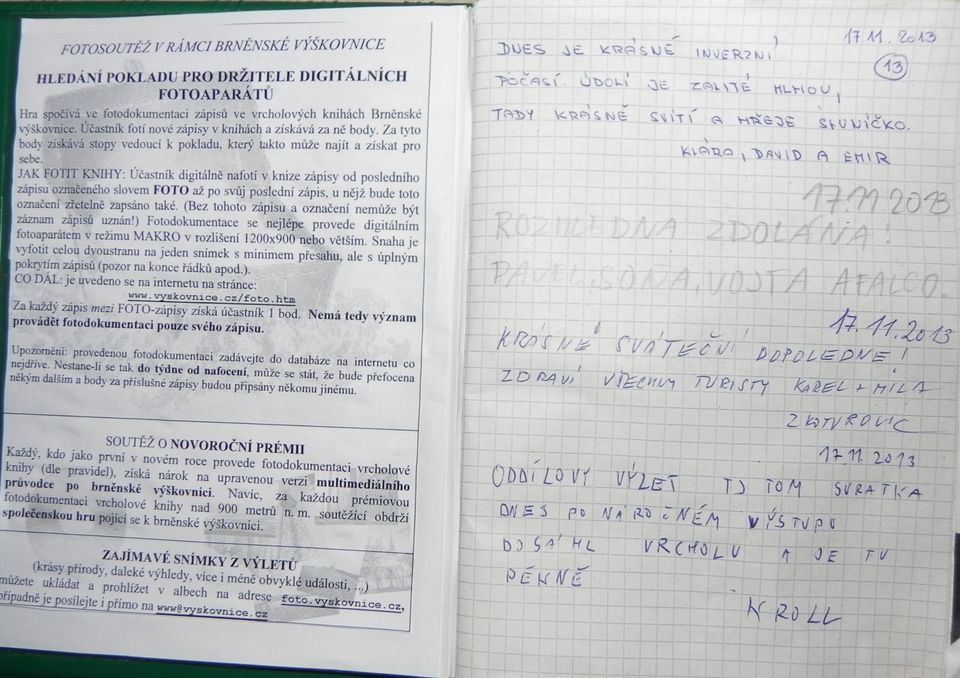 FOTOSOUTĚŽ V RÁMCI BRNĚNSKÉ VÝŠKOVNICE
HLEDÁNÍ POKLADU PRO DRŽITELE DIGITÁLNÍCH
FOTOAPARÁTŮ
Hra spočívá ve fotodokumentaci zápisů ve vrcholových knihách Brněnské
výškovnice. Účastník fotí nové zápisy v knihách a získává za ně body. Za tyto
body získává stopy vedoucí k pokladu, který takto může najít a získat pro
sebe.
JAK FOTIT KNIHY: Účastník digitálně nafotí v knize zápisy od posledního
zápisu označeného slovem FOTO až po svůj poslední zápis, u nějž bude toto
označení zřetelně zapsáno také. (Bez tohoto zápisu a označení nemůže být
záznam zápisů uznán!) Fotodokumentace se nejlépe provede digitálním
fotoaparátem v režimu MAKRO v rozlišení 1200x900 nebo větším. Snaha je
vyfotit celou dvoustranu na jeden snímek s minimem přesahu, ale s úplným
pokrytím zápisů (pozor na konce řádků apod.).
CO DÁL: je uvedeno se na internetu na stránce:
www.vyskovnice.cz/foto.htm
Za každý zápis mezi FOTO-zápisy získá účastník 1 bod. Nemá tedy význam
provádět fotodokumentaci pouze svého zápisu.
Upozornění: provedenou fotodokumentaci zadávejte do databáze na internetu co
nejdříve. Nestane-li se tak do týdne od nafocení, může se stát, že bude přefocena
někým dalším a body za příslušné zápisy budou připsány někomu jinému.
SOUTĚŽ O NOVOROČNÍ PRÉMII
Každý, kdo jako první v novém roce provede fotodokumentaci vrcholové
knihy (dle pravidel), získá nárok na upravenou verzi multimediálního
průvodce po brněnské výškovnici. Navíc, za každou prémiovou
fotodokumentaci vrcholové knihy nad 900 metrů n. m. soutěžící obdrží
společenskou hru pojící se k brněnské výškovnici.
ZAJÍMAVÉ SNÍMKY Z VÝLETŮ
(krásy přírody, daleké výhledy, více i méně obvyklé události, ...)
můžete ukládat a prohlížet v albech na adrese foto.vyskovnice.cz,
případně je posílejte i přímo na www@vyskovnice.cz
17.11.2013
13
DNES JE KRÁSNÉ INVERZNÍ
POČASÍ. ÚDOLÍ JE ZALITÉ MLHOU,
TADY KRÁSNĚ SVÍTÍ A HŘEJE SLUNÍČKO.
KLÁRA, DAVID A EMIR
17.11.2013
ROZHLEDNA ZDOLÁNA!
PAVEL, SOŇA, VOJTA A FALCO.
17.11.2013
KRÁSNÉ SVÁTEČNÍ DOPOLEDNE!
ZDRAVÍ VŠECHNY TURISTY KAREL + MILA
Z KOTVROVIC
17.11.2013
ODDÍLOVÝ VÝLET TJ TOM SVRATKA
DNES PO NÁROČNÉM VÝSTUPU
DOSÁHL VRCHOLU A JE TU
PĚKNĚ
KROLL